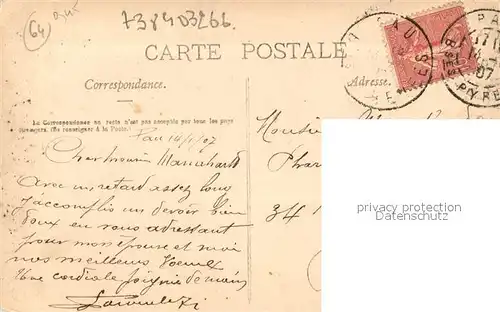 64
738403266
CARTE POSTALE
Correspondance.
Adresse.
La Correspondance au recto n'est pas acceptée par tous les pays
étrangers. (Se renseigner à la Poste.)
Pau 14/1/07
Cher Monsieur
Avec un retard assez long
j'accomplis un devoir bien
doux en vous adressant
pour mon épouse et moi
nos meilleurs Voeux
Une cordiale poignée de mains
Monsieur
Phar
34
privacy protection
Datenschutz